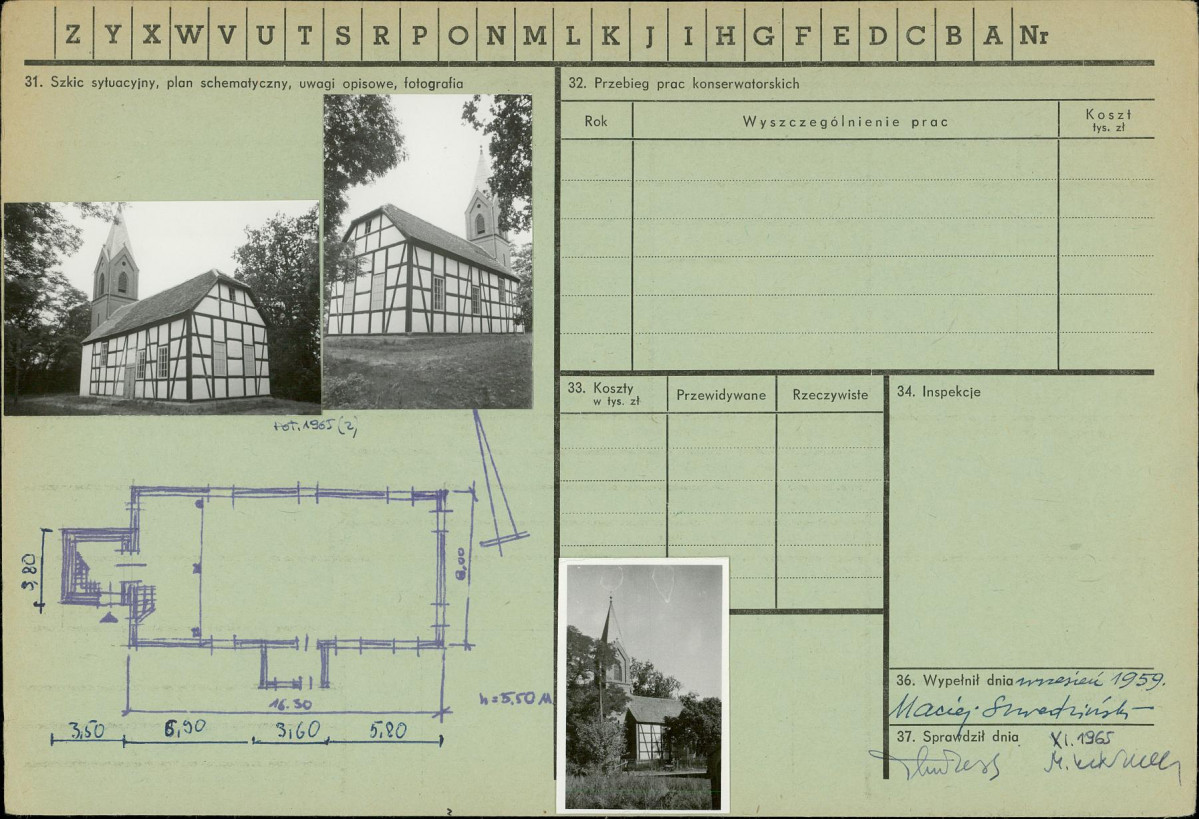 Z Y X W V U T S R P O N M L K J I H G F E D C B A Nr
31. Szkic sytuacyjny, plan schematyczny, uwagi opisowe, fotografia
fot. 1965 (2)
3,80
8,00
16.30
h = 5,50 M
3,50 6,90 3,60 5,80
32. Przebieg prac konserwatorskich
Rok Wyszczególnienie prac Koszt
tys. zł
33. Koszty
w tys. zł
Przewidywane Rzeczywiste
34. Inspekcje
36. Wypełnił dnia wrzesień 1959.
Maciej
37. Sprawdził dnia XI.1965